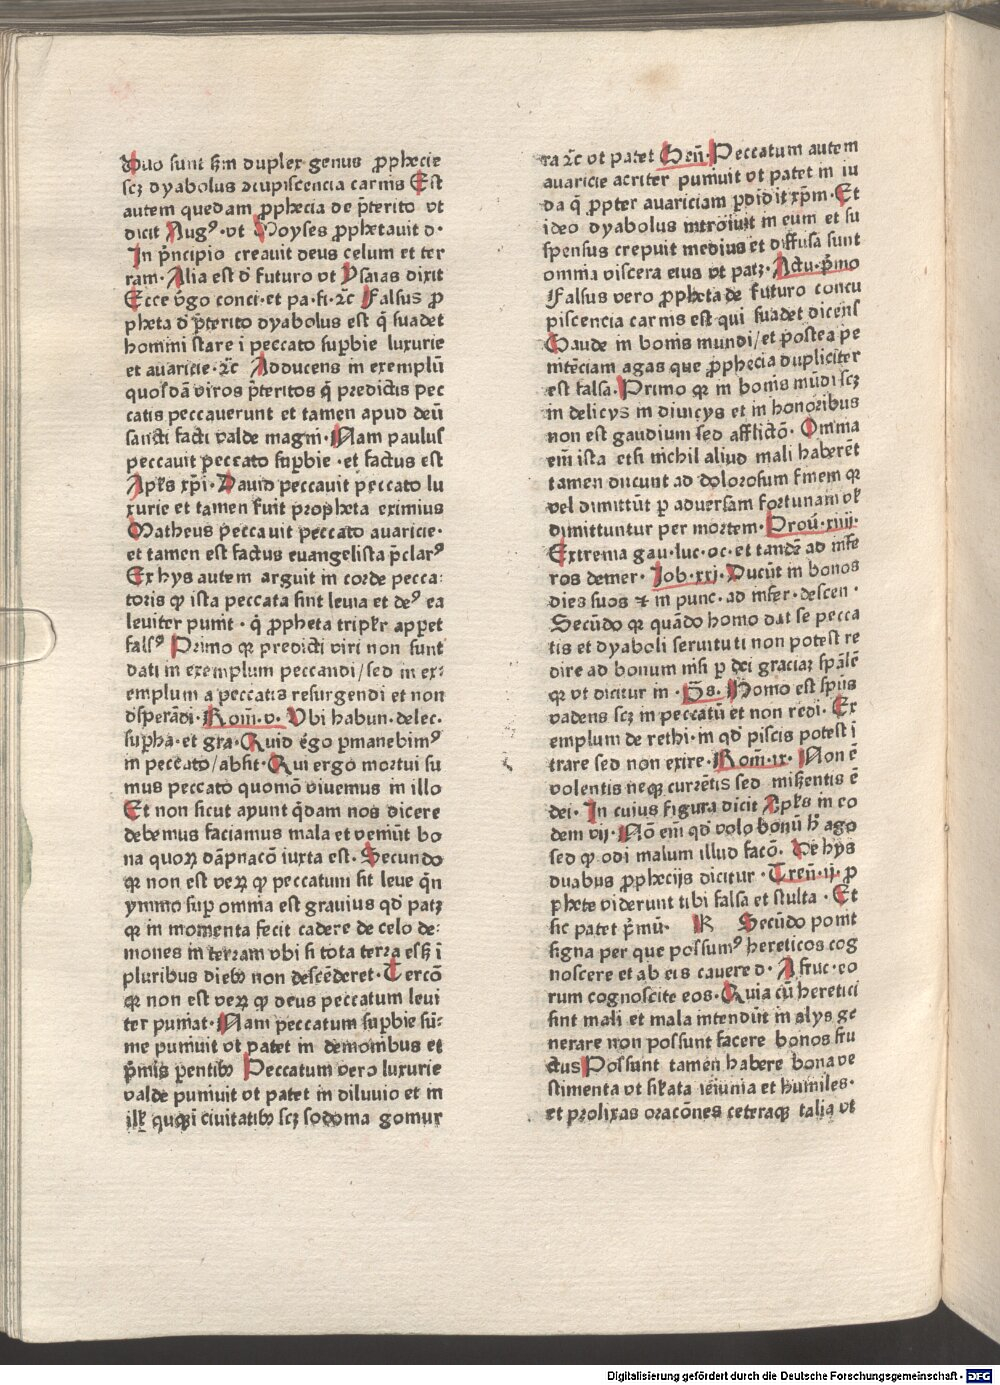 Duo sunt ẜm duplex genus ꝓphecie
scꝫ dyabolus ↄcupiscencia carnis Est
autem quedam ꝓphecia de p̄terito vt
dicit Augꝰ· vt Moyses ꝓphetauit d·
In p̄ncipio creauit deus celum et ter
ram· Alia est d̄ futuro vt Ysaias dixit
Ecce v̄go conci· et pa· fi· ⁊c̄ Falsus ꝓ
pheta d̄ p̄terito dyabolus est q̄ suadet
homini stare i peccato suꝑbie luxurie
et auaricie· ⁊c̄ Adducens in exemplū
quosdā viros p̄teritos q̄ predictis pec
catis peccauerunt et tamen apud deū
sancti facti valde magni· Nam paulus
peccauit peccato suꝑbie · et factus est
Apl̄s xp̄i· Dauid peccauit peccato lu
xurie et tamen fuit propheta eximius
Matheus peccauit peccato auaricie·
et tamen est factus euangelista p̄clarꝰ
Ex hys autem arguit in corde pecca:
toris ꝙ ista peccata sint leuia et deꝰ ea
leuiter punit · q̄ ꝓpheta triplr̄ apꝑet
falsꝰ Primo qꝛ predicti viri non sunt
dati in exemplum peccandi/sed in ex:
emplum a peccatis resurgendi et non
d̄sperādi· Rom̄·v· Vbi habun· delec·
supha· et gra· Quid ḡo ꝑmanebimꝰ
in peccato/absit· Qui ergo mortui su
mus peccato quomō viuemus in illo
Et non sicut ayunt q̄dam nos dicere
debemus faciamus mala et veniūt bo
na quoꝝ dāpnacō iuxta est· Secundo
qꝛ non est veꝝ ꝙ peccatum sit leue q̄n
ymmo suꝑ omnia est grauius qd̄ patꝫ
qꝛ in momenta fecit cadere de celo de:
mones in terram vbi si tota terra esset ī
pluribus diebꝫ non descēderet· Tercō
qꝛ non est veꝝ ꝙ deus peccatum leui
ter puniat· Nam peccatum suꝑbie sū:
me puniuit vt patet in demonibus et
p̄mis ꝑentibꝫ Peccatum vero luxurie
valde puniuit vt patet in diluuio et in
quīꝫ ciuitatibꝫ scꝫ sodoma gomur
ra ⁊c̄ vt patet Gen̄· Peccatum autem
auaricie acriter puniuit vt patet in iu
da q̄ ꝓpter auariciam ꝑdidit xp̄m· Et
ideo dyabolus introiuit in eum et su
spensus crepuit medius et diffusa sunt
omnia viscera eius vt patꝫ· Actu· p̄mo
Falsus vero ꝓpheta de futuro concu
piscencia carnis est qui suadet dicens
Gaude in bonis mundi/et postea pe
nitēciam agas que ꝓphecia dupliciter
est falsa· Primo qꝛ in bonis mūdi scꝫ
in delicys in diuicys et in honoribus
non est gaudium sed afflictō· Omnia
em̄ ista etsi nichil aliud mali haberēt
tamen ducunt ad dolorosum finem qꝛ
vel dimittūt ꝑ aduersam fortunam vl̄
dimittuntur per mortem· Prou̅·xiiij·
Extrema gau· luc· oc· et tandē ad īfe
ros demer· Iob·xxj· Ducūt in bonos
dies suos ⁊ in punc· ad infer· descen·
Secūdo qꝛ quādo homo dat se pecca
tis et dyaboli seruituti non potest re
dire ad bonum nisi ꝑ dei graciaꝫ sp̄alē
qꝛ vt dicitur in · Ps· Homo est sp̄us
vadens scꝫ in peccatū et non redi· Ex
emplum de rethi· in qd̄ piscis potest ī
trare sed non exire· Rom̄·ix· Non ē
volentis neqꝫ currētis sed misentis ē
dei· In cuius figura dicit Apl̄s in eo
dem vij· Nō em̄ qd̄ volo bonū h̄ ago
sed ꝙ odi malum illud facō· De hys
duabus ꝓphecijs dicitur · Tren̄·ij· ꝓ
phete viderunt tibi falsa et stulta· Et
sic patet p̄mū· R Secūdo ponit
signa per que possumꝰ hereticos cog
noscere et ab eis cauere d· A fruc· eo
rum cognoscite eos· Quia cū heretici
sint mali et mala intendūt in alys ge
nerare non possunt facere bonos fru
ctus Possunt tamen habere bona ve
stimenta vt sil̄ata ieiunia et humiles·
et prolixas oracōnes ceteraqꝫ talia vt
Digitalisierung gefördert durch die Deutsche Forschungsgemeinschaft - DFG